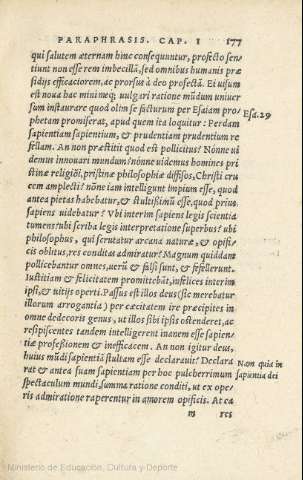 PARAPHRASIS. CAP. I 177
qui salutem æternam hinc consequuntur, profecto sen-
tiunt non esse rem imbecillã, sed omnibus humanis præ
sidijs efficaciorem, ac prorsus à deo profectã. Ei uisum
est noua hac minimeq; uulgari ratione mũdum uniuer
sum instaurare quod olim se facturum per Esaiam pro-
phetam promiserat, apud quem ita loquitur: Perdam Esa.29
sapientiam sapientium, & prudentiam prudentium re
fellam. An non præstitit quod est pollicitus? Nónne ui
demus innouari mundum? nónne uidemus homines pri
stinæ religiõi, pristinæ philosophiæ diffisos, Christi cru
cem amplecti? nõne iam intelligunt impium esse, quod
antea pietas habebatur, & stultißimũ esse, quod prius
sapiens uidebatur? Vbi interim sapiens legis scientia
tumens? ubi scriba legis interpretatione superbus? ubi
philosophus, qui scrutatur arcana naturæ, & opifi-
cis oblitus, res conditas admiratur? Magnum quiddam
pollicebantur omnes, uerũ & falsi sunt, & fefellerunt.
Iustitiam & felicitatem promittebãt, infelices interim
ipsi, & uitijs operti. Passus est illos deus (sic merebatur
illorum arrogantia) per cæcitatem ire præcipites in
omne dedecoris genus, ut illos sibi ipsis ostenderet, ac
resipiscentes tandem intelligerent inanem esse sapien-
tiæ profeßionem & inefficacem. An non igitur deus,
huius mũdi sapientiã stultam esse declarauit? Declara Non quia in
rat & antea suam sapientiam per hoc pulcherrimum sapiẽtia dei
spectaculum mundi, summa ratione conditi, ut ex ope-
ris admiratione raperentur in amorem opificis. At ea
m res
Ministerio de Educación, Cultura y Deporte